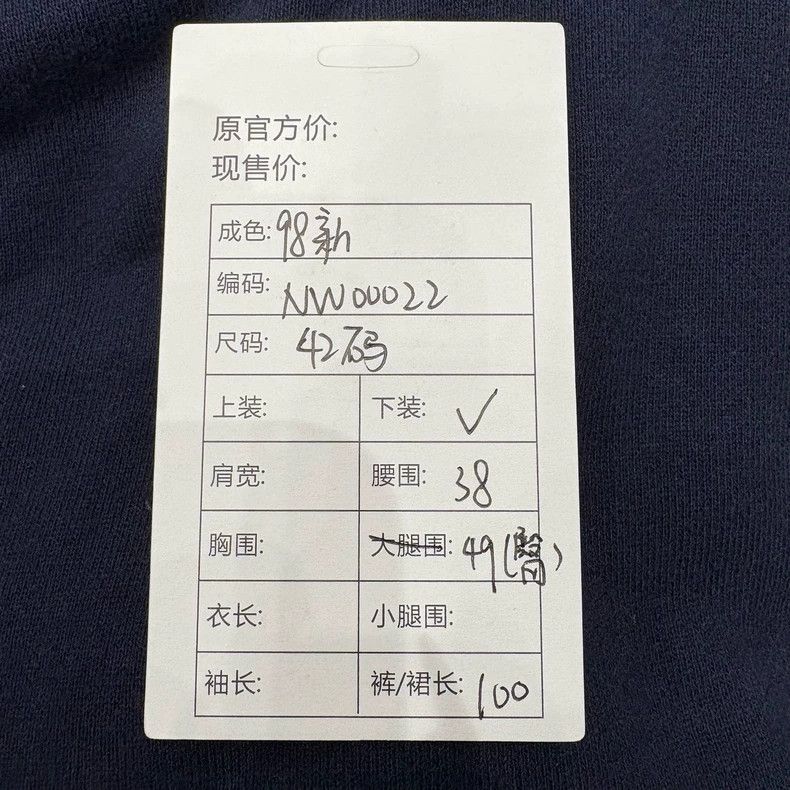 原官方价:
现售价:
成色: 98新
编码: NW00022
尺码: 42码
上装: 下装: ✓
肩宽: 腰围: 38
胸围: 大腿围: 49(臀)
衣长: 小腿围:
袖长: 裤/裙长: 100